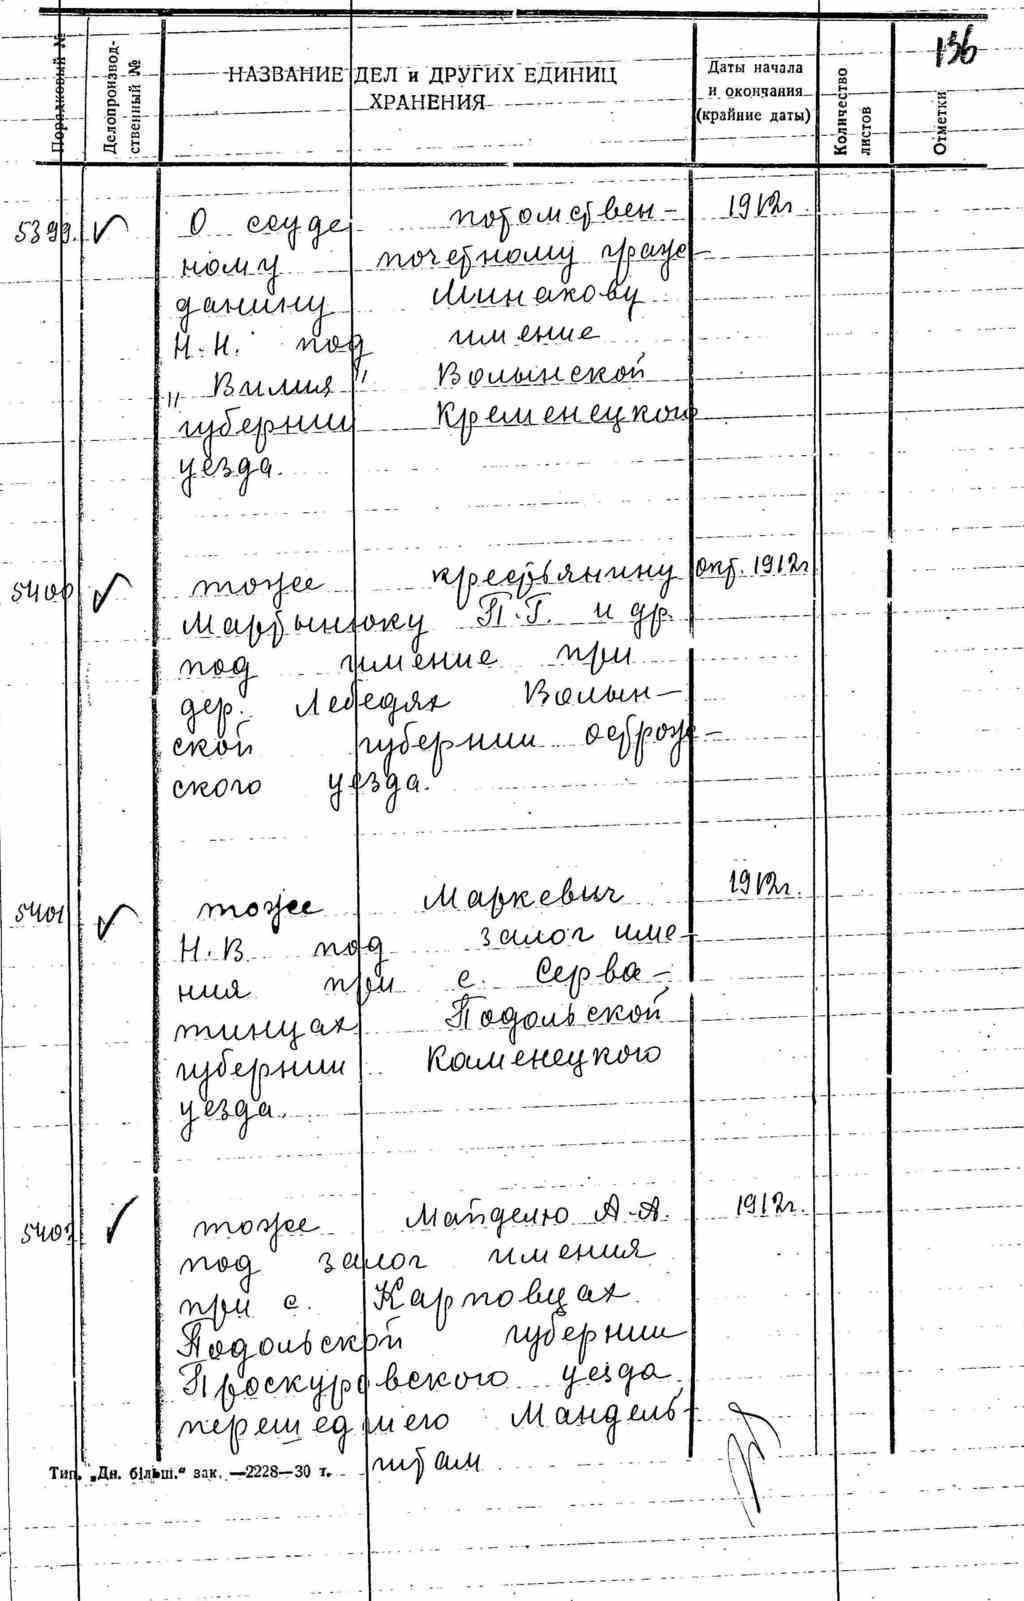 136
Порядковый №
Делопроизвод-
ственный №
НАЗВАНИЕ ДЕЛ и ДРУГИХ ЕДИНИЦ
ХРАНЕНИЯ
Даты начала
и окончания
(крайние даты)
Количество
листов
Отметки
5399. О ссуде потомствен- 1912г.
ному почетному граж-
данину Минакову
Н.Н. под имение
„Вилия" Волынской
губернии Кременецкого
уезда.
5400 тоже крестьянину окт. 1912г
Мартынюку П.Г. и др.
под имение при
дер. Лебедях Волын-
ской губернии острож-
ского уезда.
5401 тоже Маркевич 1912г.
Н.В под залог име-
ния при с. Серва-
тинцах Подольской
губернии Каменецкого
уезда.
5402 тоже Майделю А.А. 1912г.
под залог имения
при с. Карповцах
Подольской губернии
Проскуровского уезда
перешедшего Мандель-
Тип. „Дн. більш." зак. —2228—30 т.